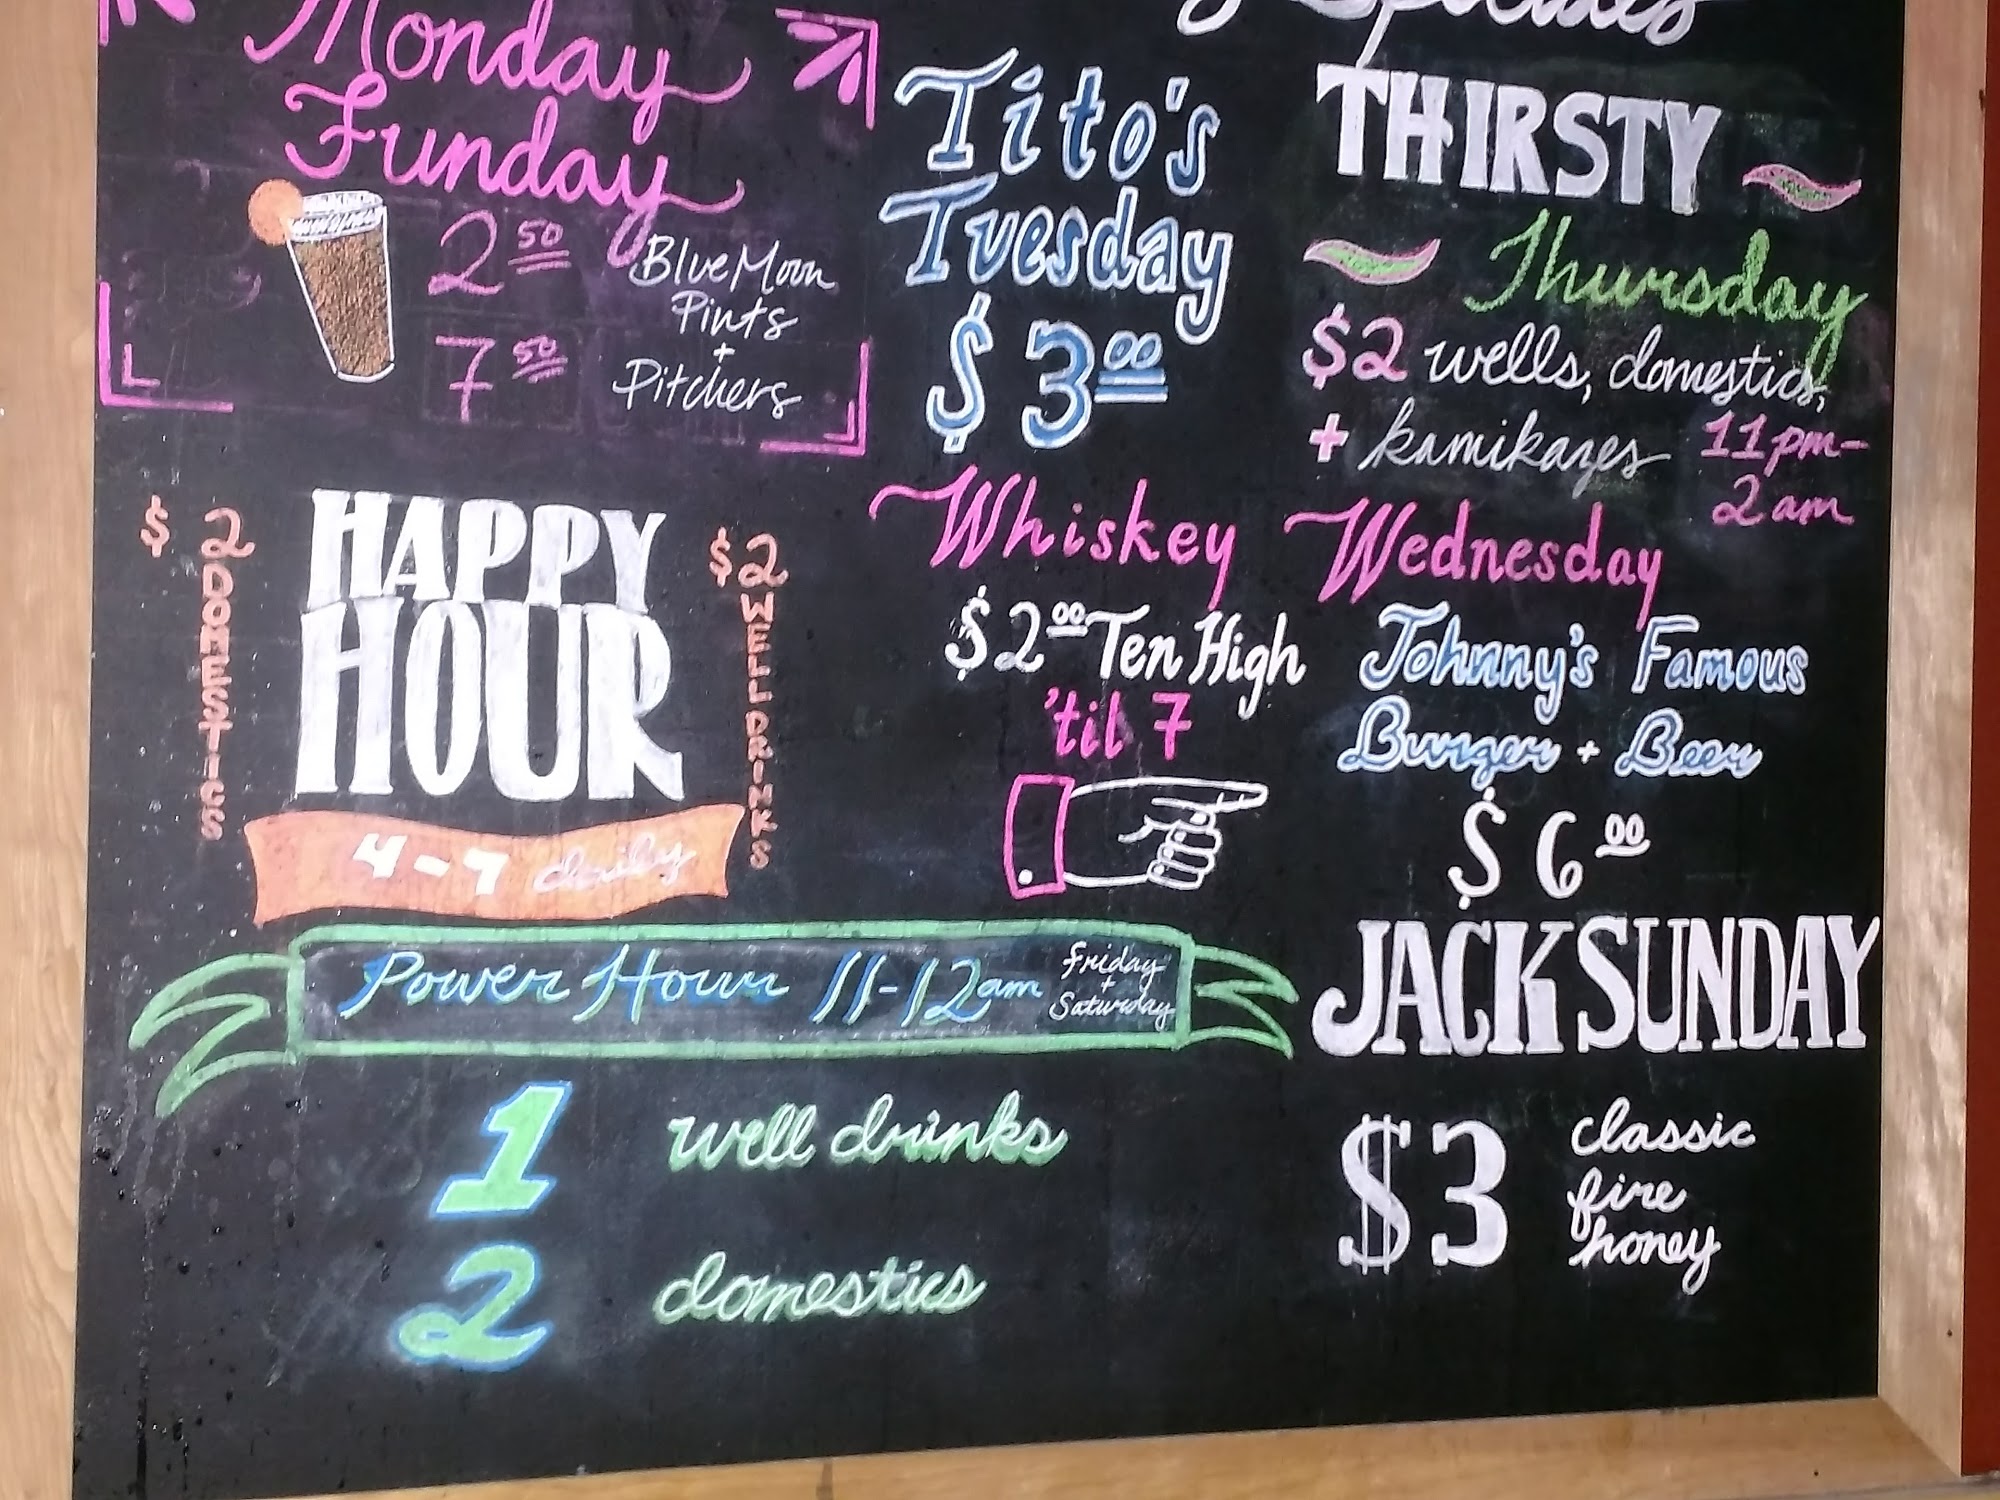 Monday
Funday
2 50 Blue Moon
Pints
+
7 50 Pitchers
Specials
Tito's
Tuesday
$3.00
THIRSTY
Thursday
$2 wells, domestics,
+ kamikazes 11pm-
2am
$2 DOMESTICS
HAPPY
HOUR
$2 WELL DRINKS
4-7 daily
Whiskey Wednesday
$2.00 Ten High
'til 7
Johnny's Famous
Burger + Beer
$6.00
Power Hour 11-12am Friday
+
Saturday
1 well drinks
2 domestics
JACK SUNDAY
$3 classic
fire
honey